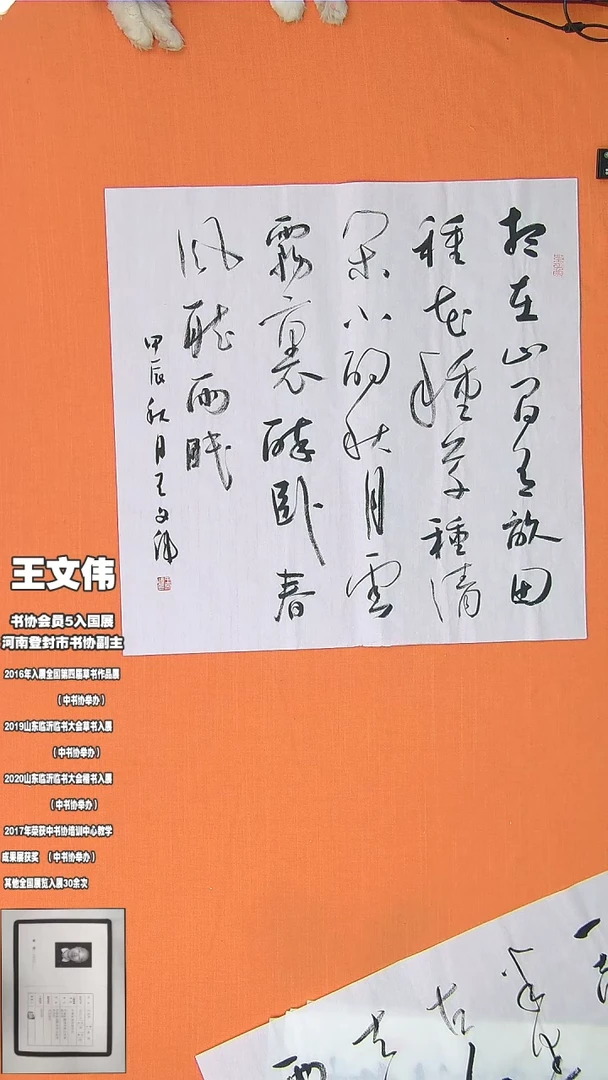 想在山間有畝田
種花種草種清
閑小酌秋月雲
霧裏醉卧春
風聽雨眠
甲辰秋月王文偉
王文伟
书协会员5入国展
河南登封市书协副主
2016年入展全国第四届草书作品展
（中书协举办）
2019山东临沂临书大会草书入展
（中书协举办）
2020山东临沂临书大会楷书入展
（中书协举办）
2017年荣获中书协培训中心教学
成果展获奖 （中书协举办）
其他全国展览入展30余次